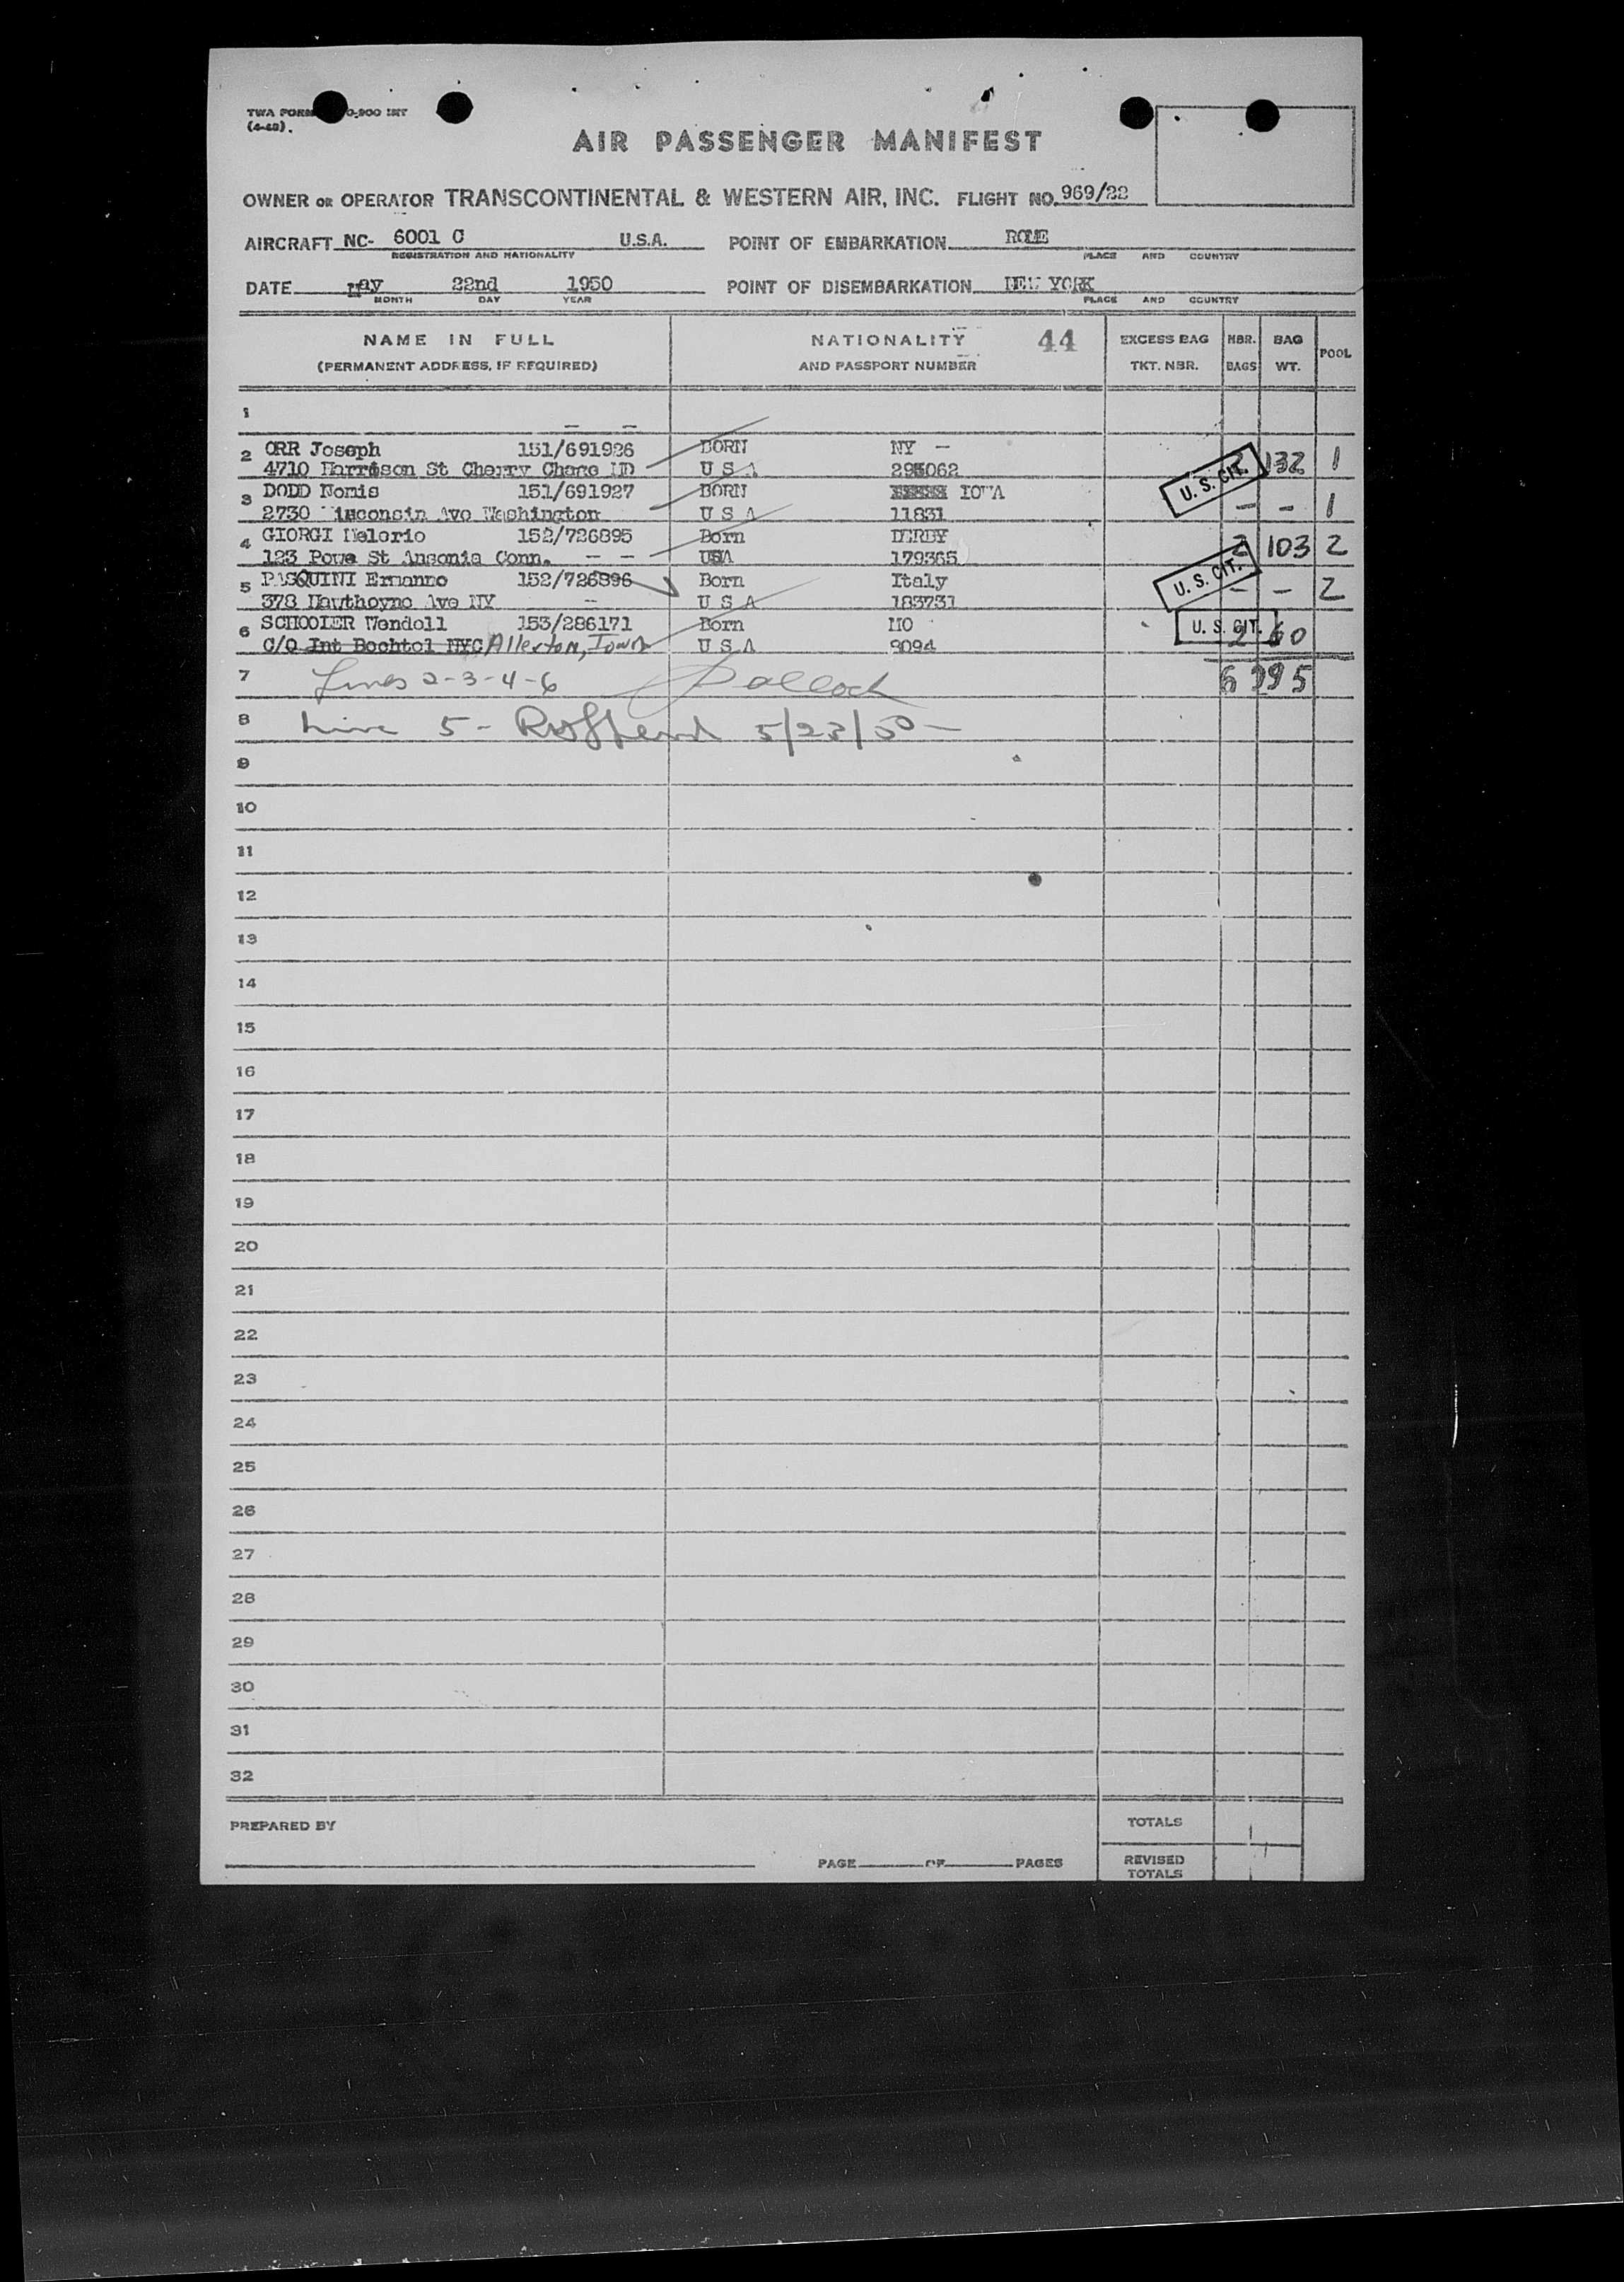 TWA FORM 0-900 INT
(4-48).
AIR PASSENGER MANIFEST
OWNER OR OPERATOR TRANSCONTINENTAL & WESTERN AIR, INC. FLIGHT NO. 969/22
AIRCRAFT NC- 6001 C U.S.A. POINT OF EMBARKATION ROME
REGISTRATION AND NATIONALITY PLACE AND COUNTRY
DATE May 22nd 1950 POINT OF DISEMBARKATION NEW YORK
MONTH DAY YEAR PLACE AND COUNTRY
NAME IN FULL NATIONALITY 44 EXCESS BAG NBR. BAG POOL
(PERMANENT ADDRESS, IF REQUIRED) AND PASSPORT NUMBER TKT. NBR. BAGS WT.
1 — —
2 ORR Joseph 151/691926 BORN NY —
4710 Harrison St Cherry Chace MD U S A 295062 2 132 1
U. S. CIT.
3 DODD Nomis 151/691927 BORN IOWA
2730 Wisconsin Ave Washington U S A 11831 – – 1
4 GIORGI Nelorio 152/726895 Born DERBY
123 Powe St Ansonia Conn. — — USA 179365 2 103 2
U. S. CIT.
5 PASQUINI Ermanno 152/726896 Born Italy
378 Hawthoyne Ave NY — U S A 183731 – – 2
6 SCHOOLER Wendell 153/286171 Born MO
C/O Int Bechtol NYC Allerton, Iowa U S A 9094 2 60
U. S. CIT.
7 Lines 2-3-4-6 Pollock 6 295
8 Line 5- 5/23/50 —
9
10
11
12
13
14
15
16
17
18
19
20
21
22
23
24
25
26
27
28
29
30
31
32
PREPARED BY TOTALS
PAGE OF PAGES REVISED TOTALS